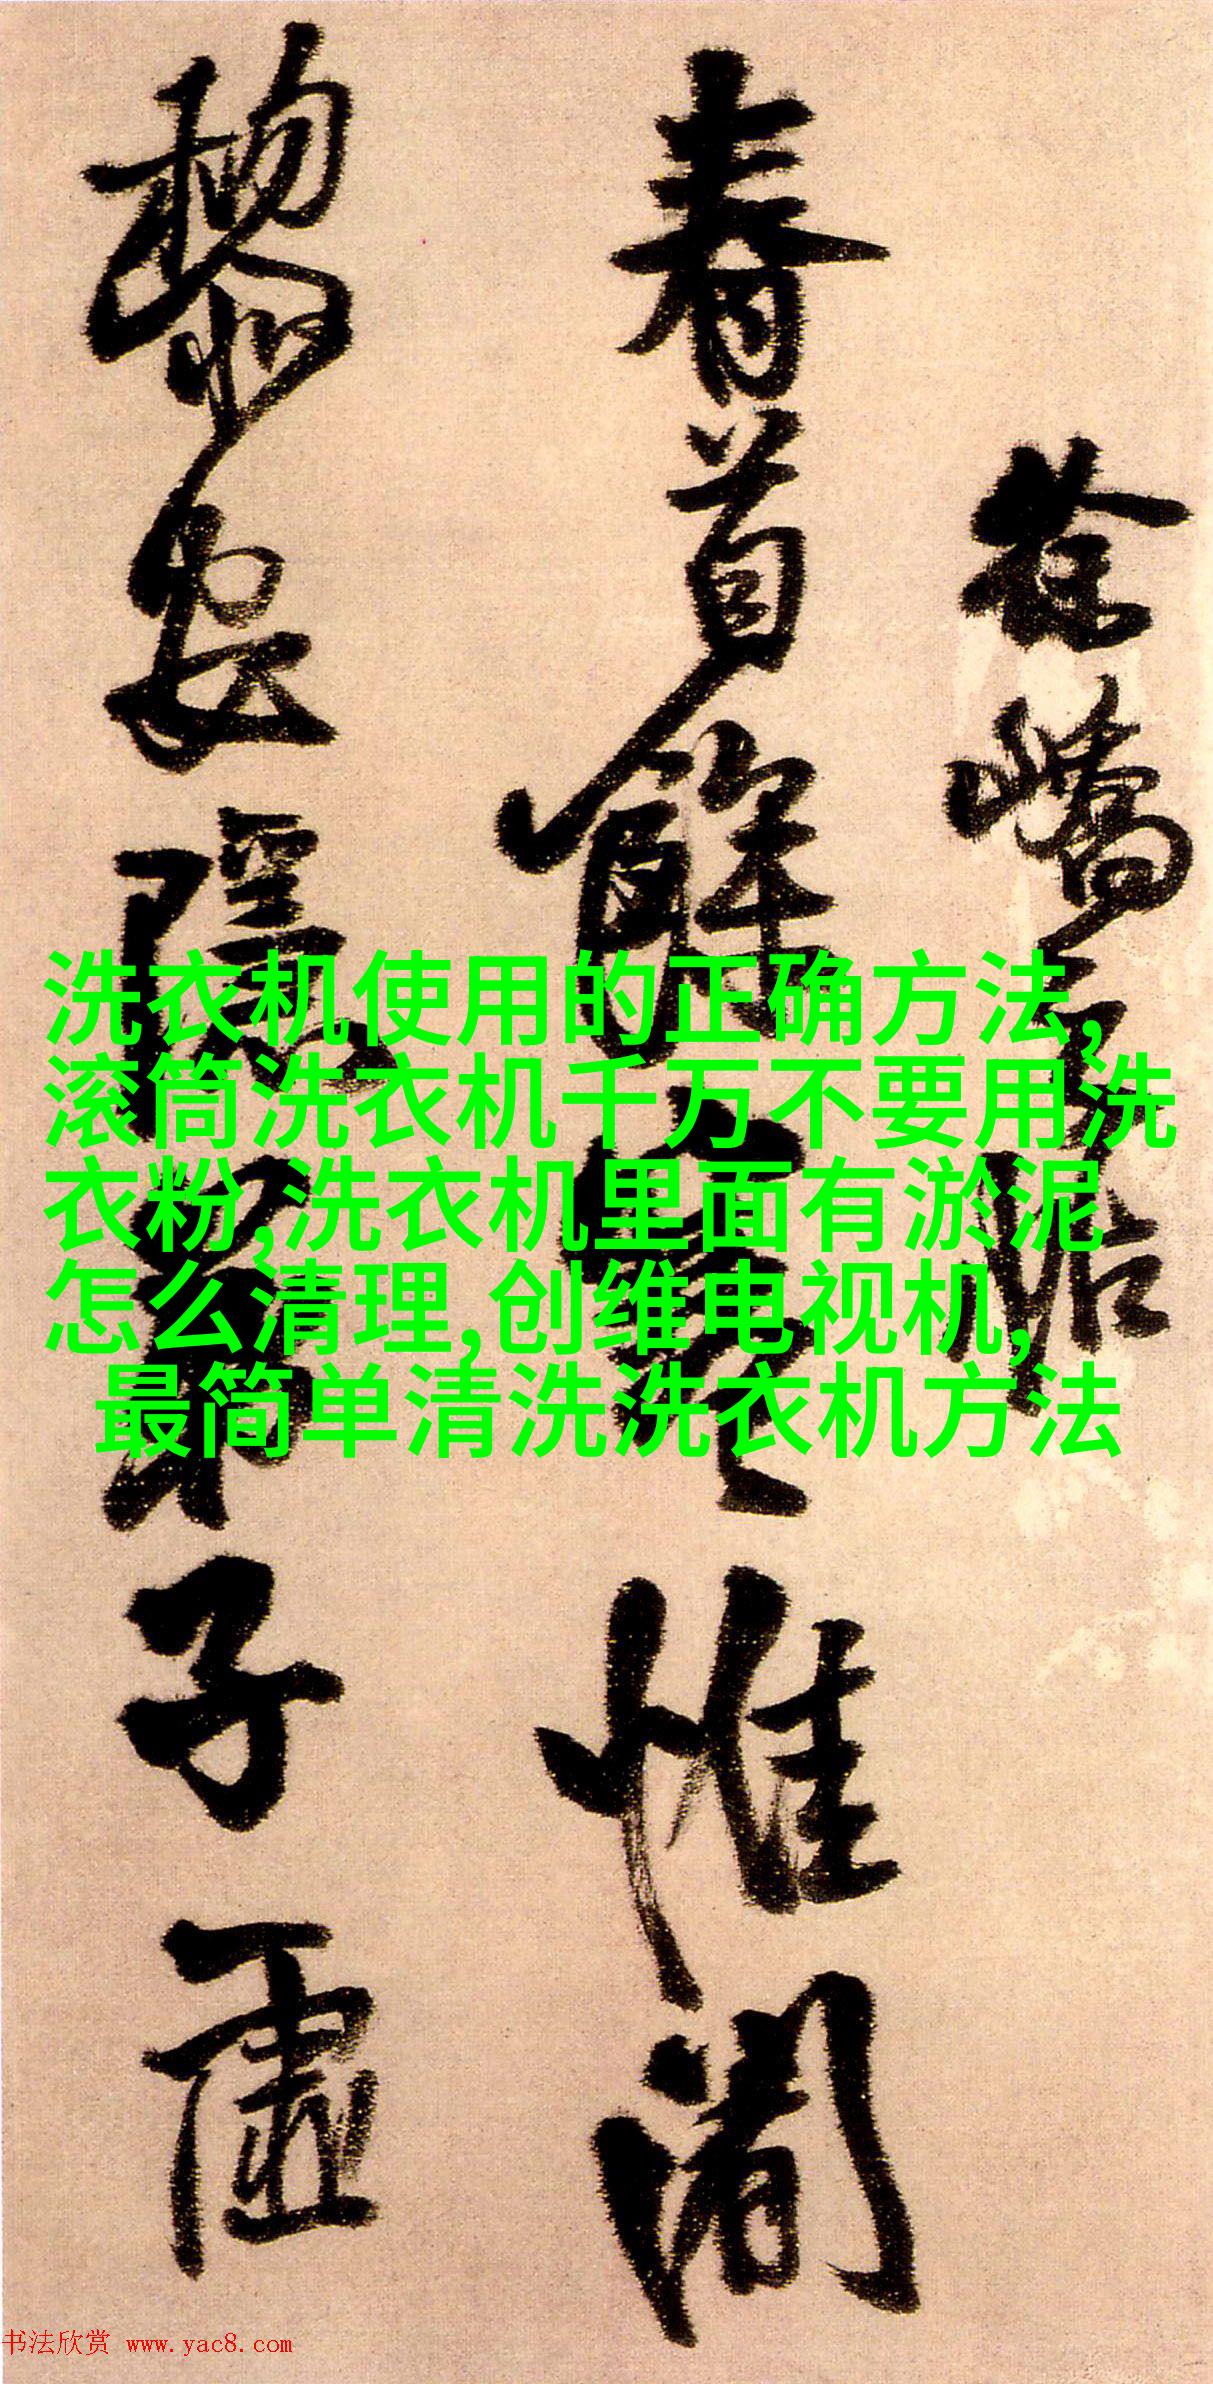 徐嶠之帖
春首餘寒惟闍
黎安隱弟子虛
洗衣机使用的正确方法,
滚筒洗衣机千万不要用洗
衣粉,洗衣机里面有淤泥
怎么清理,创维电视机,
最简单清洗洗衣机方法
书法欣赏 www.yac8.com